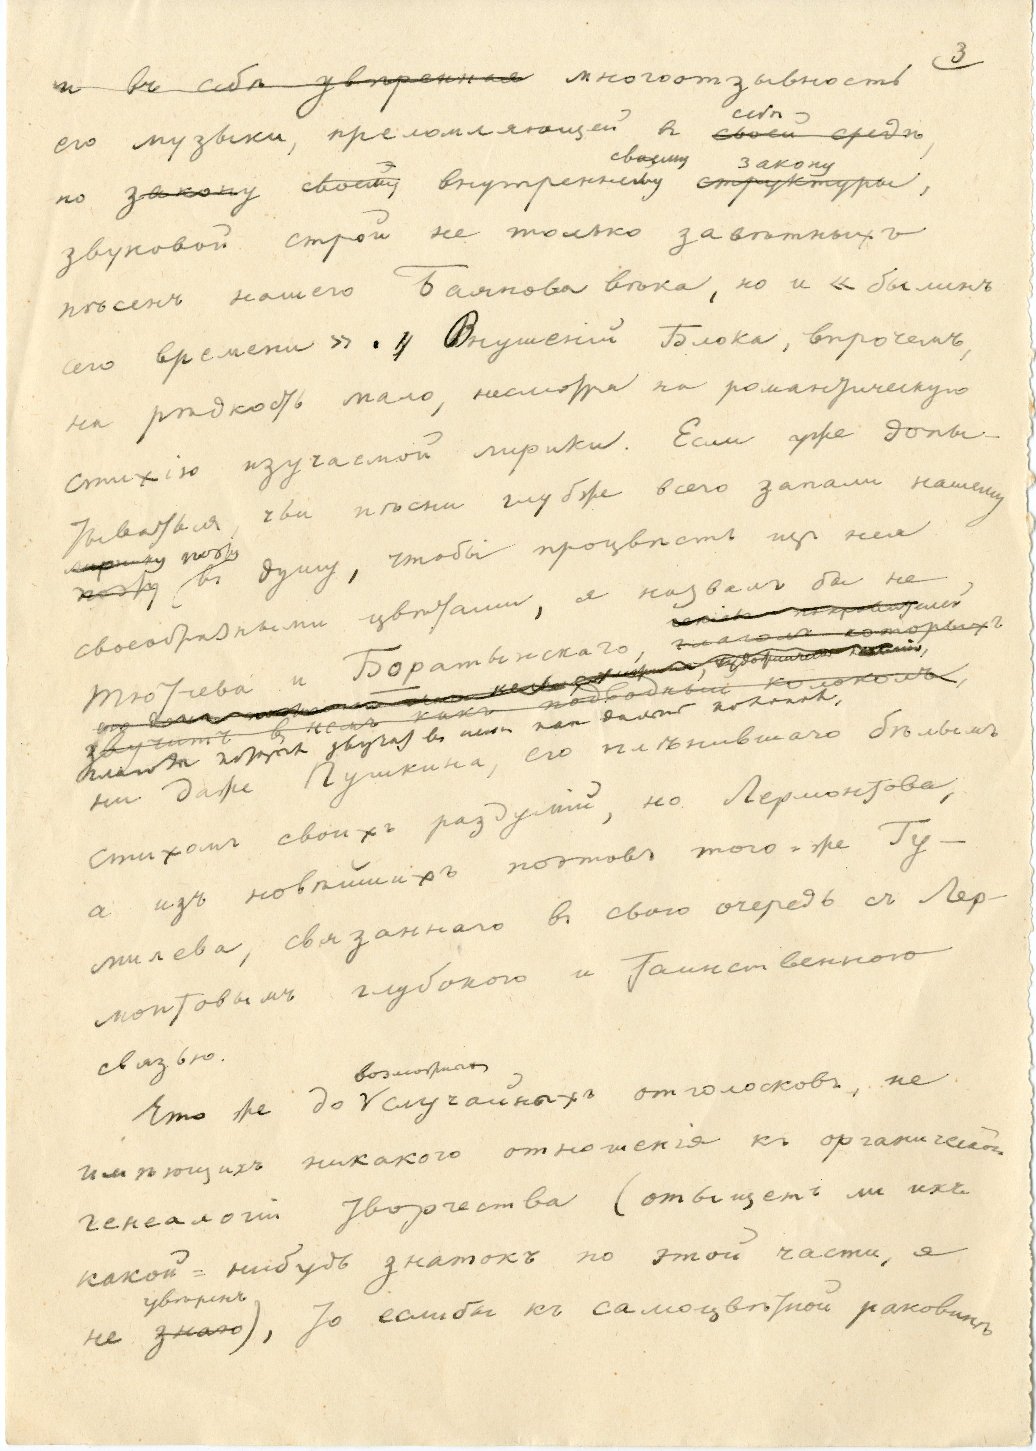 3
и въ себѣ увѣренная многоотзывность
себѣ
его музыки, преломляющей в своей средѣ,
своему закону
по закону своему внутреннему структуры,
звуковой строй не только завѣтныхъ
пѣсенъ нашего Баянова вѣка, но и « былинъ
сего времени ». Внушенiй Блока, впрочемъ,
на рѣдкость мало, несмотря на романтическую
стихiю изучаемой лирики. Если уже допы-
тываться, чьи пѣсни глубже всего запали нашему
лирику поэту
поэту въ душу, чтобы процвѣсть изъ нея
своеобразными цвѣтами, я назвалъ бы не
Тютчева и Боратынскаго, глаголъ которыхъ
звучитъ в немъ какъ подводный колоколъ,
ни даже Пушкина, его плѣнившаго бѣлымъ
стихомъ своихъ раздумiй, но Лермонтова,
а изъ новѣйшихъ поэтовъ того-же Гу-
милева, связаннаго въ свою очередь съ Лер-
монтовымъ глубокою и таинственною
связью.
возможныхъ
Что же до случайныхъ отголосковъ, не
имѣющихъ никакого отношенiя къ органической
генеалогiи творчества (отыщетъ ли ихъ
какой-нибудь знатокъ по этой части, я
увѣренъ
не знаю), то еслибы къ самоцвѣтной раковинѣ